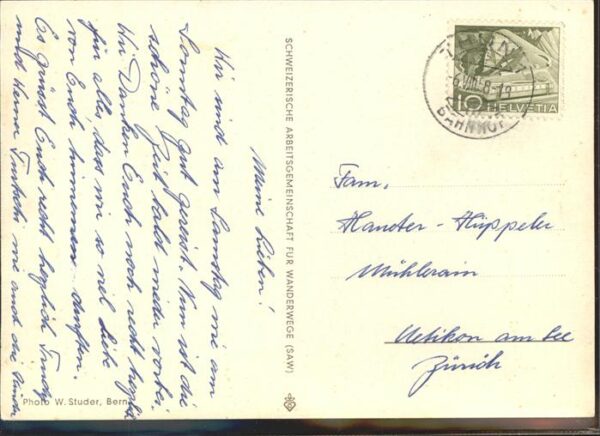 Meine Lieben!
Wir sind am Samstag wie am
Sonntag gut gereist. Nun ist die
schöne Zeit bald wieder vorbei.
Wir Danken Euch noch recht herzlich
für alles, das wir so viel Liebe
von Euch hinnemen durften.
Es grüsst Euch recht herzlich Trudy
und Hans und die Kinder
SCHWEIZERISCHE ARBEITSGEMEINSCHAFT FÜR WANDERWEGE (SAW)
Photo W. Studer, Bern
10 HELVETIA
BAHNHOF
Fam.
Handter-Hüppeler
Mühlerain
Uetikon am See
Zürich